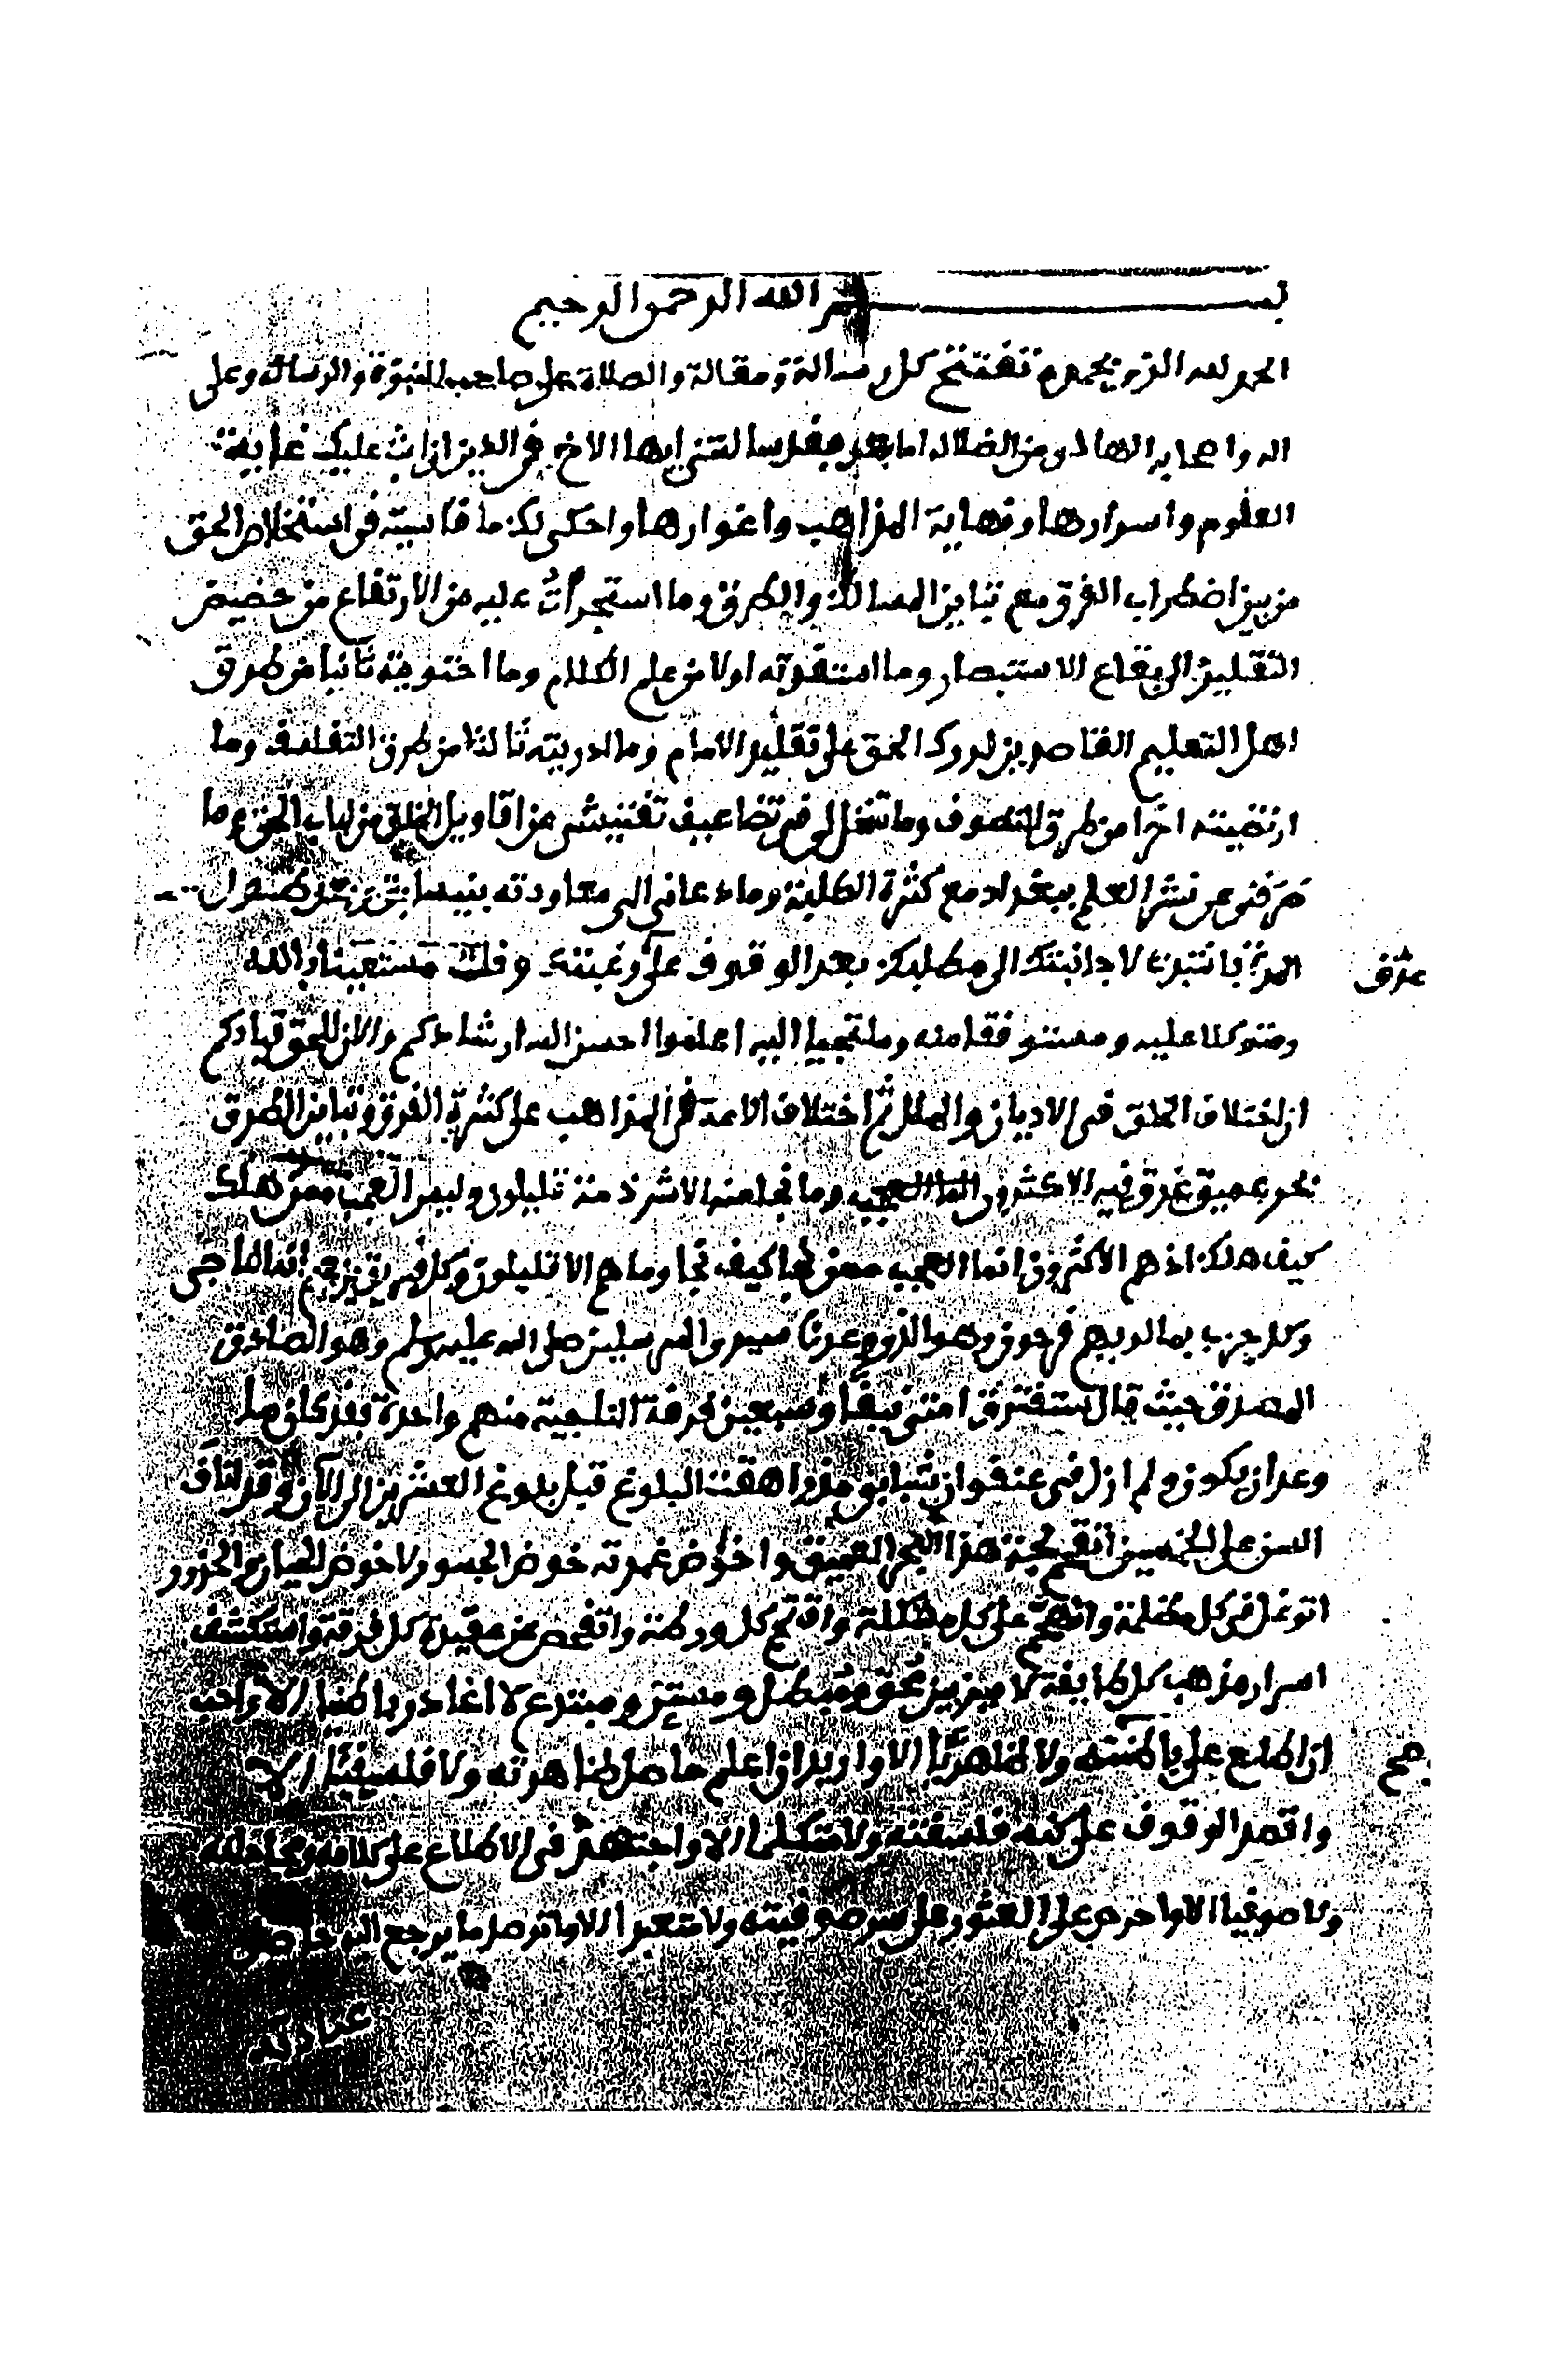 بسم الله الرحمن الرحيم
الحمد لله الذي بحمده تفتتح كل رسالة ومقالة والصلاة على صاحب النبوة والرسالة وعلى
اله واصحابه الهادين من الضلالة اما بعد فقد سالتني ايها الاخ في الدين ان ابث عليك غاية
العلوم واسرارها ونهاية المذاهب واغوارها واحكي لك ما قاسيته في استخلاص الحق
من بين اضطراب الفرق مع تباين المسالك والطرق وما استجرأت عليه من الارتفاع من حضيض
التقليد الى يفاع الاستبصار وما استفوته اولا من علم الكلام وما احتويته ثانيا من طرق
اهل التعليم القاصرين لدرك الحق على تقليد الامام وما ازدريته ثالثا من طرق التفلسف وما
ارتضيته اخرا من طريق التصوف وما تنخل لي في تضاعيف تفتيشي من اقاويل الخلق من لباب الحق وما
صرفني عن نشر العلم ببغداد مع كثرة الطلبة وما دعاني الى معاودته بنيسابور بعد طول
المدة فابتدرت لاجابتك الى مطلبك بعد الوقوف على رغبتك وقلت مستعينا بالله
ومتوكلا عليه ومستوفقا منه وملتجيا اليه اعلموا احسن الله ارشادكم والان للحق قيادكم
ان اختلاف الخلق في الاديان والملل ثم اختلاف الامة في المذاهب على كثرة الفرق وتباين الطرق
بحر عميق غرق فيه الاكثرون وما نجا منه الا شرذمة قليلون وليس العجب ممن هلك
كيف هلك اذ هم الاكثرون انما العجب ممن نجا كيف نجا وما هم الا قليلون وكل فريق يزعم انه الناجي
وكل حزب بما لديهم فرحون وهو الذي وعدنا سيد المرسلين صلى الله عليه وسلم وهو الصادق
المصدق حيث قال ستفترق امتي نيفا وسبعين فرقة الناجية منهم واحدة فقد كان ما
وعد ان يكون ولم ازل في عنفوان شبابي مذ راهقت البلوغ قبل بلوغ العشرين الى الآن وقد اناف
السن على الخمسين اقتحم لجة هذا البحر العميق واخوض غمرته خوض الجسور لا خوض الجبان الحذور
اتوغل في كل مظلمة واتهجم على كل مشكلة واقتحم كل ورطة واتفحص عن عقيدة كل فرقة واستكشف
اسرار مذهب كل طايفة لا ميز بين محق ومبطل و ومبتدع لا اغادر باطنيا الا واحب
ان اطلع على باطنيته ولا ظاهريا الا واريد ان اعلم حاصل ظاهريته ولا فلسفيا الا
واقصد الوقوف على كنه فلسفته ولا متكلما الا واجتهد في الاطلاع على كلامه ومجادلته
ولا صوفيا الا واحرص على العثور على سر صوفيته ولا متعبدا الا واترصد ما يرجع اليه حاصل
عبادته
صح